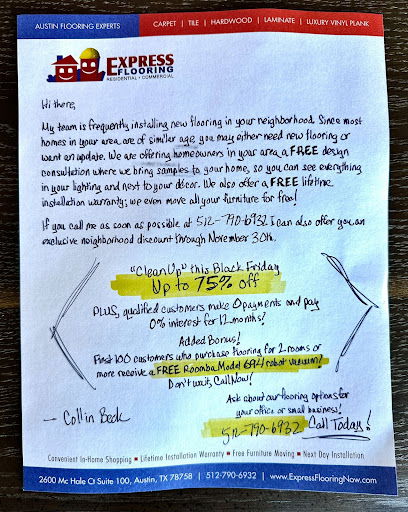 AUSTIN FLOORING EXPERTS
CARPET | TILE | HARDWOOD | LAMINATE | LUXURY VINYL PLANK
EXPRESS
FLOORING
RESIDENTIAL • COMMERCIAL
Hi there,
My team is frequently installing new flooring in your neighborhood. Since most
homes in your area are of similar age you may either need new flooring or
want an update. We are offering homeowners in your area a FREE design
consultation where we bring samples to your home, so you can see everything
in your lighting and next to your décor. We also offer a FREE lifetime
installation warranty; we even move all your furniture for free!
If you call me as soon as possible at 512-790-6932 I can also offer you an
exclusive neighborhood discount through November 30th.
"Clean Up" this Black Friday
Up to 75% off
PLUS, qualified customers make 0 payments and pay
0% interest for 12 months!
Added Bonus!
First 100 customers who purchase flooring for 2 rooms or
more receive a FREE Roomba Model 694 robot vacuum!
Don't wait, Call Now!
Ask about our flooring options for
your office or small business!
— Collin Beck
512-790-6932 Call Today!
Convenient In-Home Shopping ■ Lifetime Installation Warranty ■ Free Furniture Moving ■ Next Day Installation
2600 Mc Hale Ct Suite 100, Austin, TX 78758 | 512-790-6932 | www.ExpressFlooringNow.com